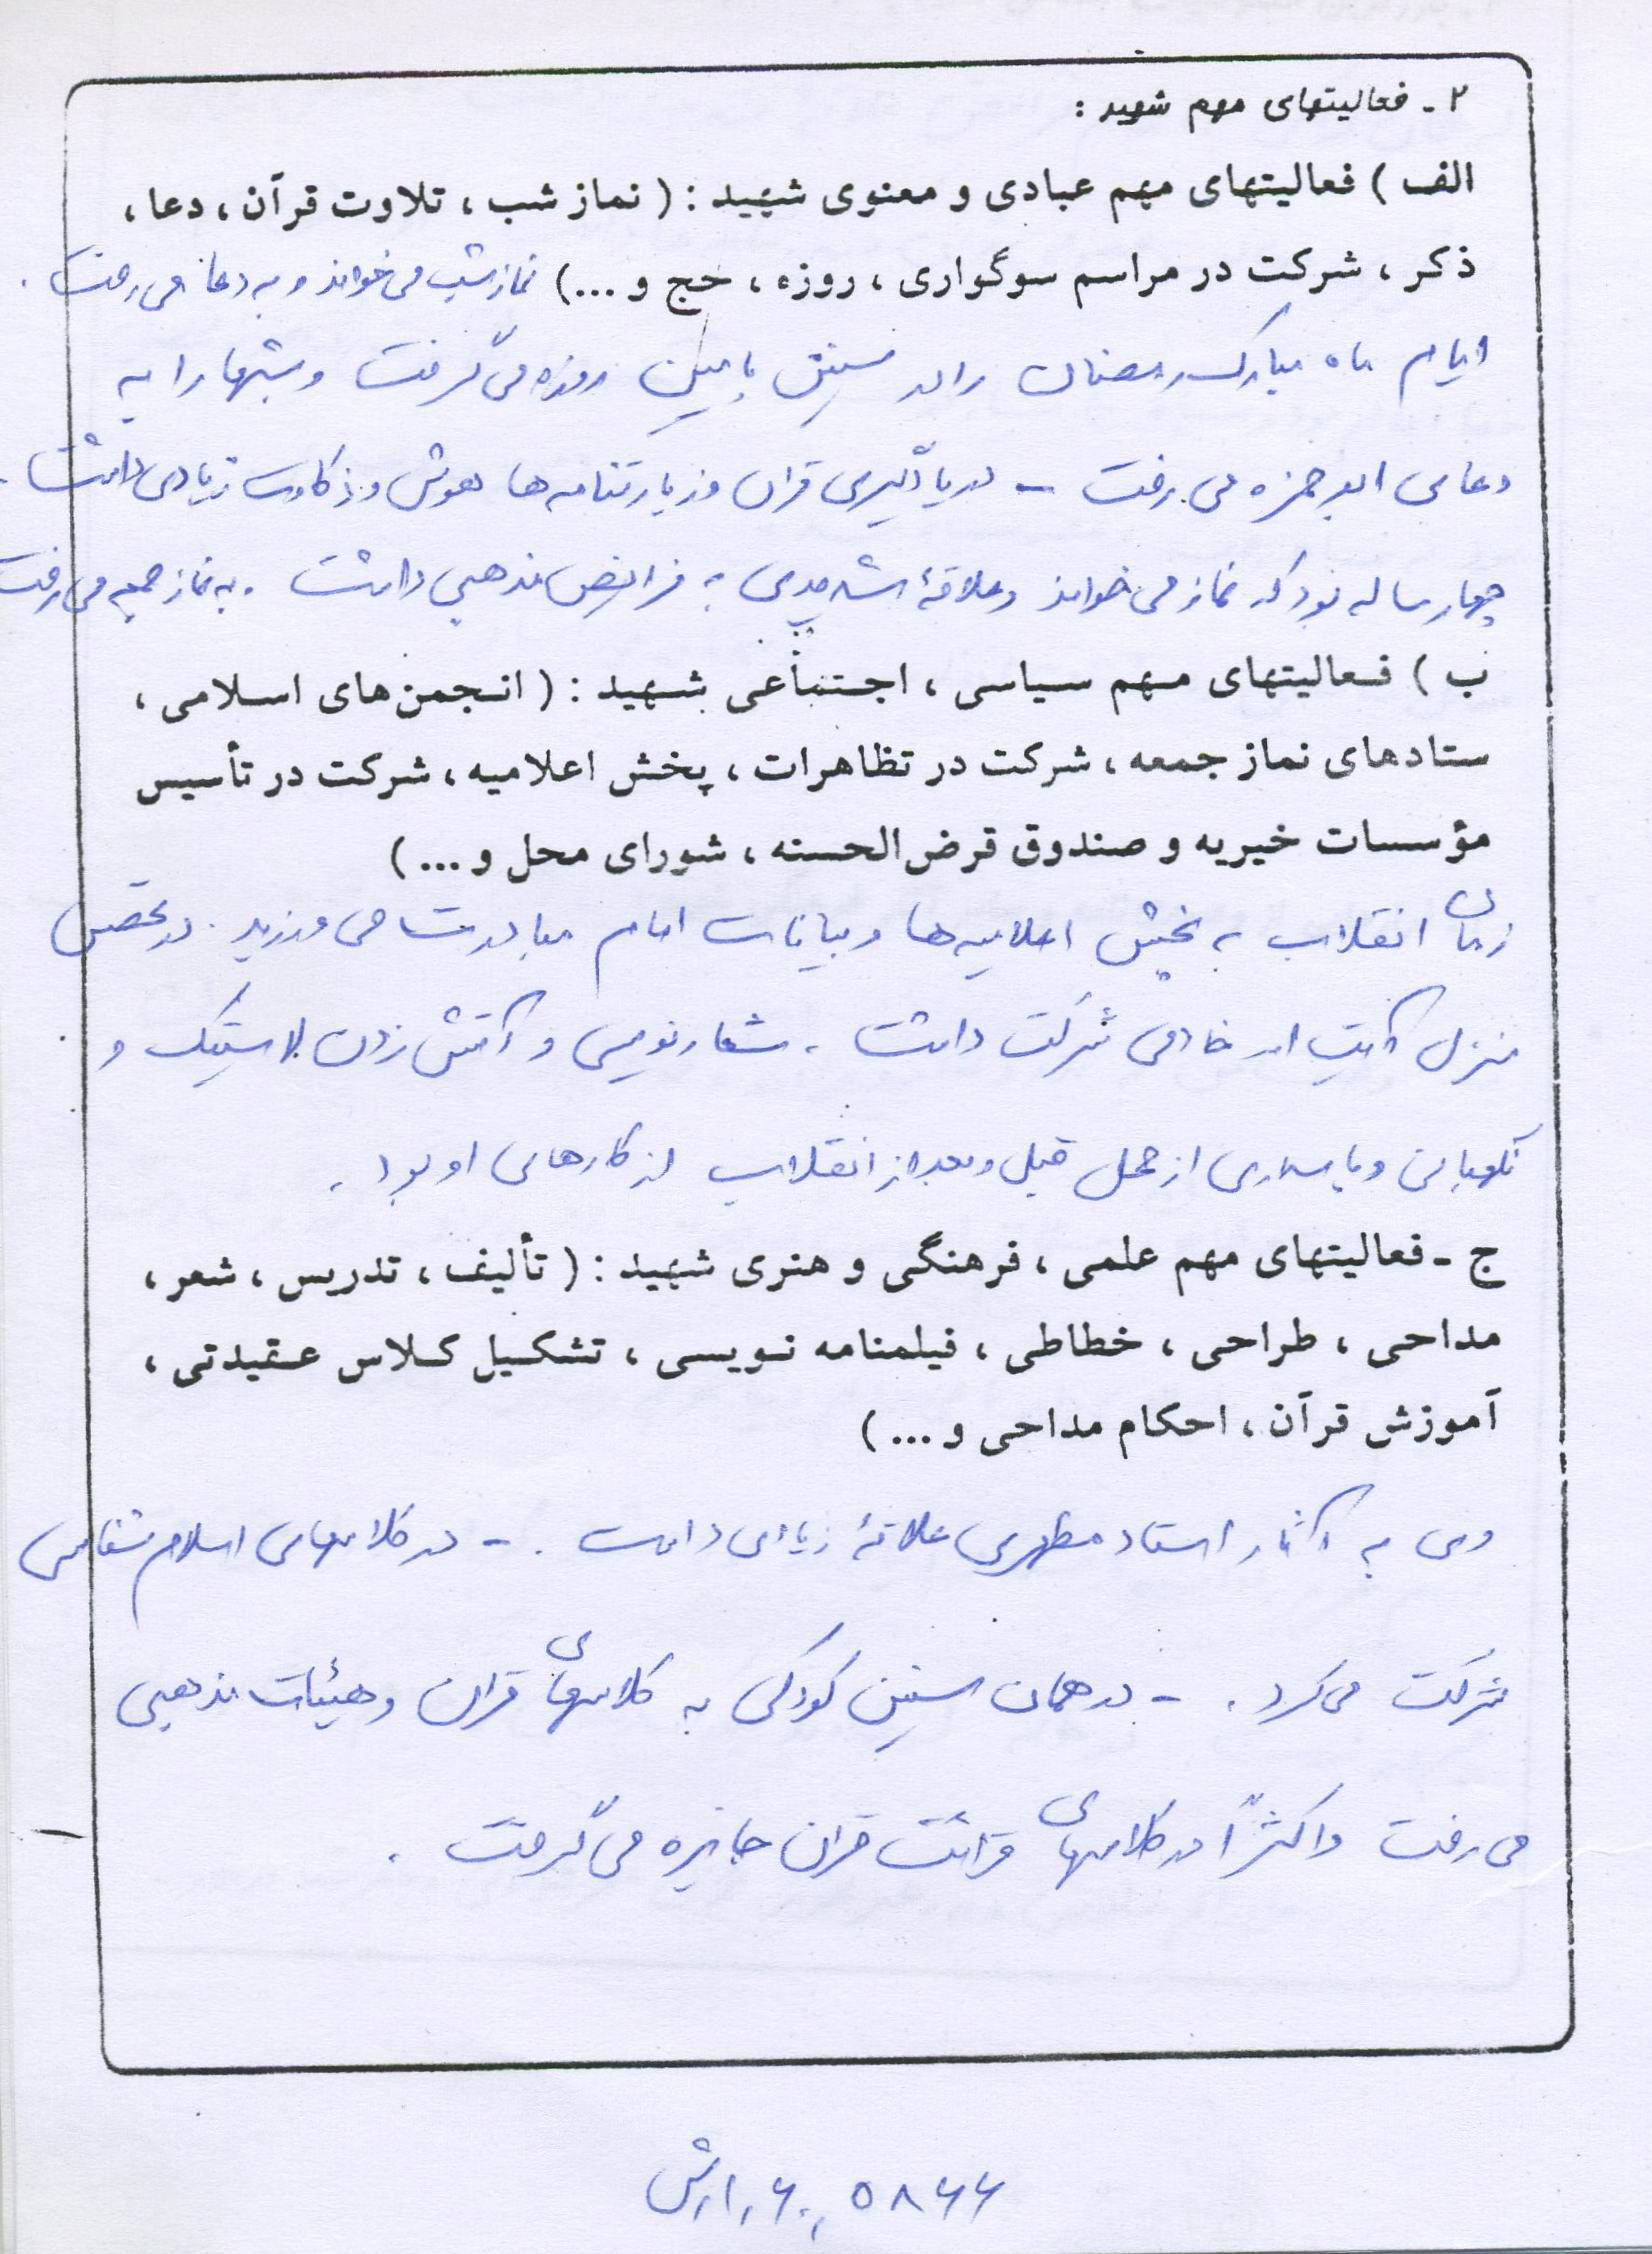 ۲ - فعالیتهای مهم شهید :
الف ) فعالیتهای مهم عبادی و معنوی شهید : ( نماز شب ، تلاوت قرآن ، دعا ،
ذکر ، شرکت در مراسم سوگواری ، روزه ، حج و ... ) نماز شب می خواند و به دعا می رفت .
ایام ماه مبارک رمضان را در سنین پایین روزه می گرفت و شبها را به
دعای ابوحمزه می رفت - در یادگیری قران و زیارتنامه ها هوش و ذکاوت زیادی داشت .
چهار ساله بود که نماز می خواند و علاقهٔ شدیدی به فرائض مذهبی داشت . به نماز جمعه می رفت
ب ) فعالیتهای مهم سیاسی ، اجتماعی شهید : ( انجمن های اسلامی ،
ستادهای نماز جمعه ، شرکت در تظاهرات ، پخش اعلامیه ، شرکت در تأسیس
مؤسسات خیریه و صندوق قرض الحسنه ، شورای محل و ... )
زمان انقلاب به پخش اعلامیه ها و بیانات امام مبادرت می ورزید . در تحصن
منزل آیت ا... خادمی شرکت داشت . شعارنویسی و آتش زدن لاستیک و
نگهبانی و پاسداری از محل قبل و بعد از انقلاب از کارهای او بود .
ج - فعالیتهای مهم علمی ، فرهنگی و هنری شهید : ( تألیف ، تدریس ، شعر ،
مداحی ، طراحی ، خطاطی ، فیلمنامه نویسی ، تشکیل کلاس عقیدتی ،
آموزش قرآن ، احکام مداحی و ... )
وی به آثار استاد مطهری علاقهٔ زیادی داشت . - در کلاسهای اسلام شناسی
شرکت می کرد . - در همان سنین کودکی به کلاسهای قران و هیئات مذهبی
می رفت و اکثراً در کلاسهای قرائت قران جایزه می گرفت .
۵۸۶۶